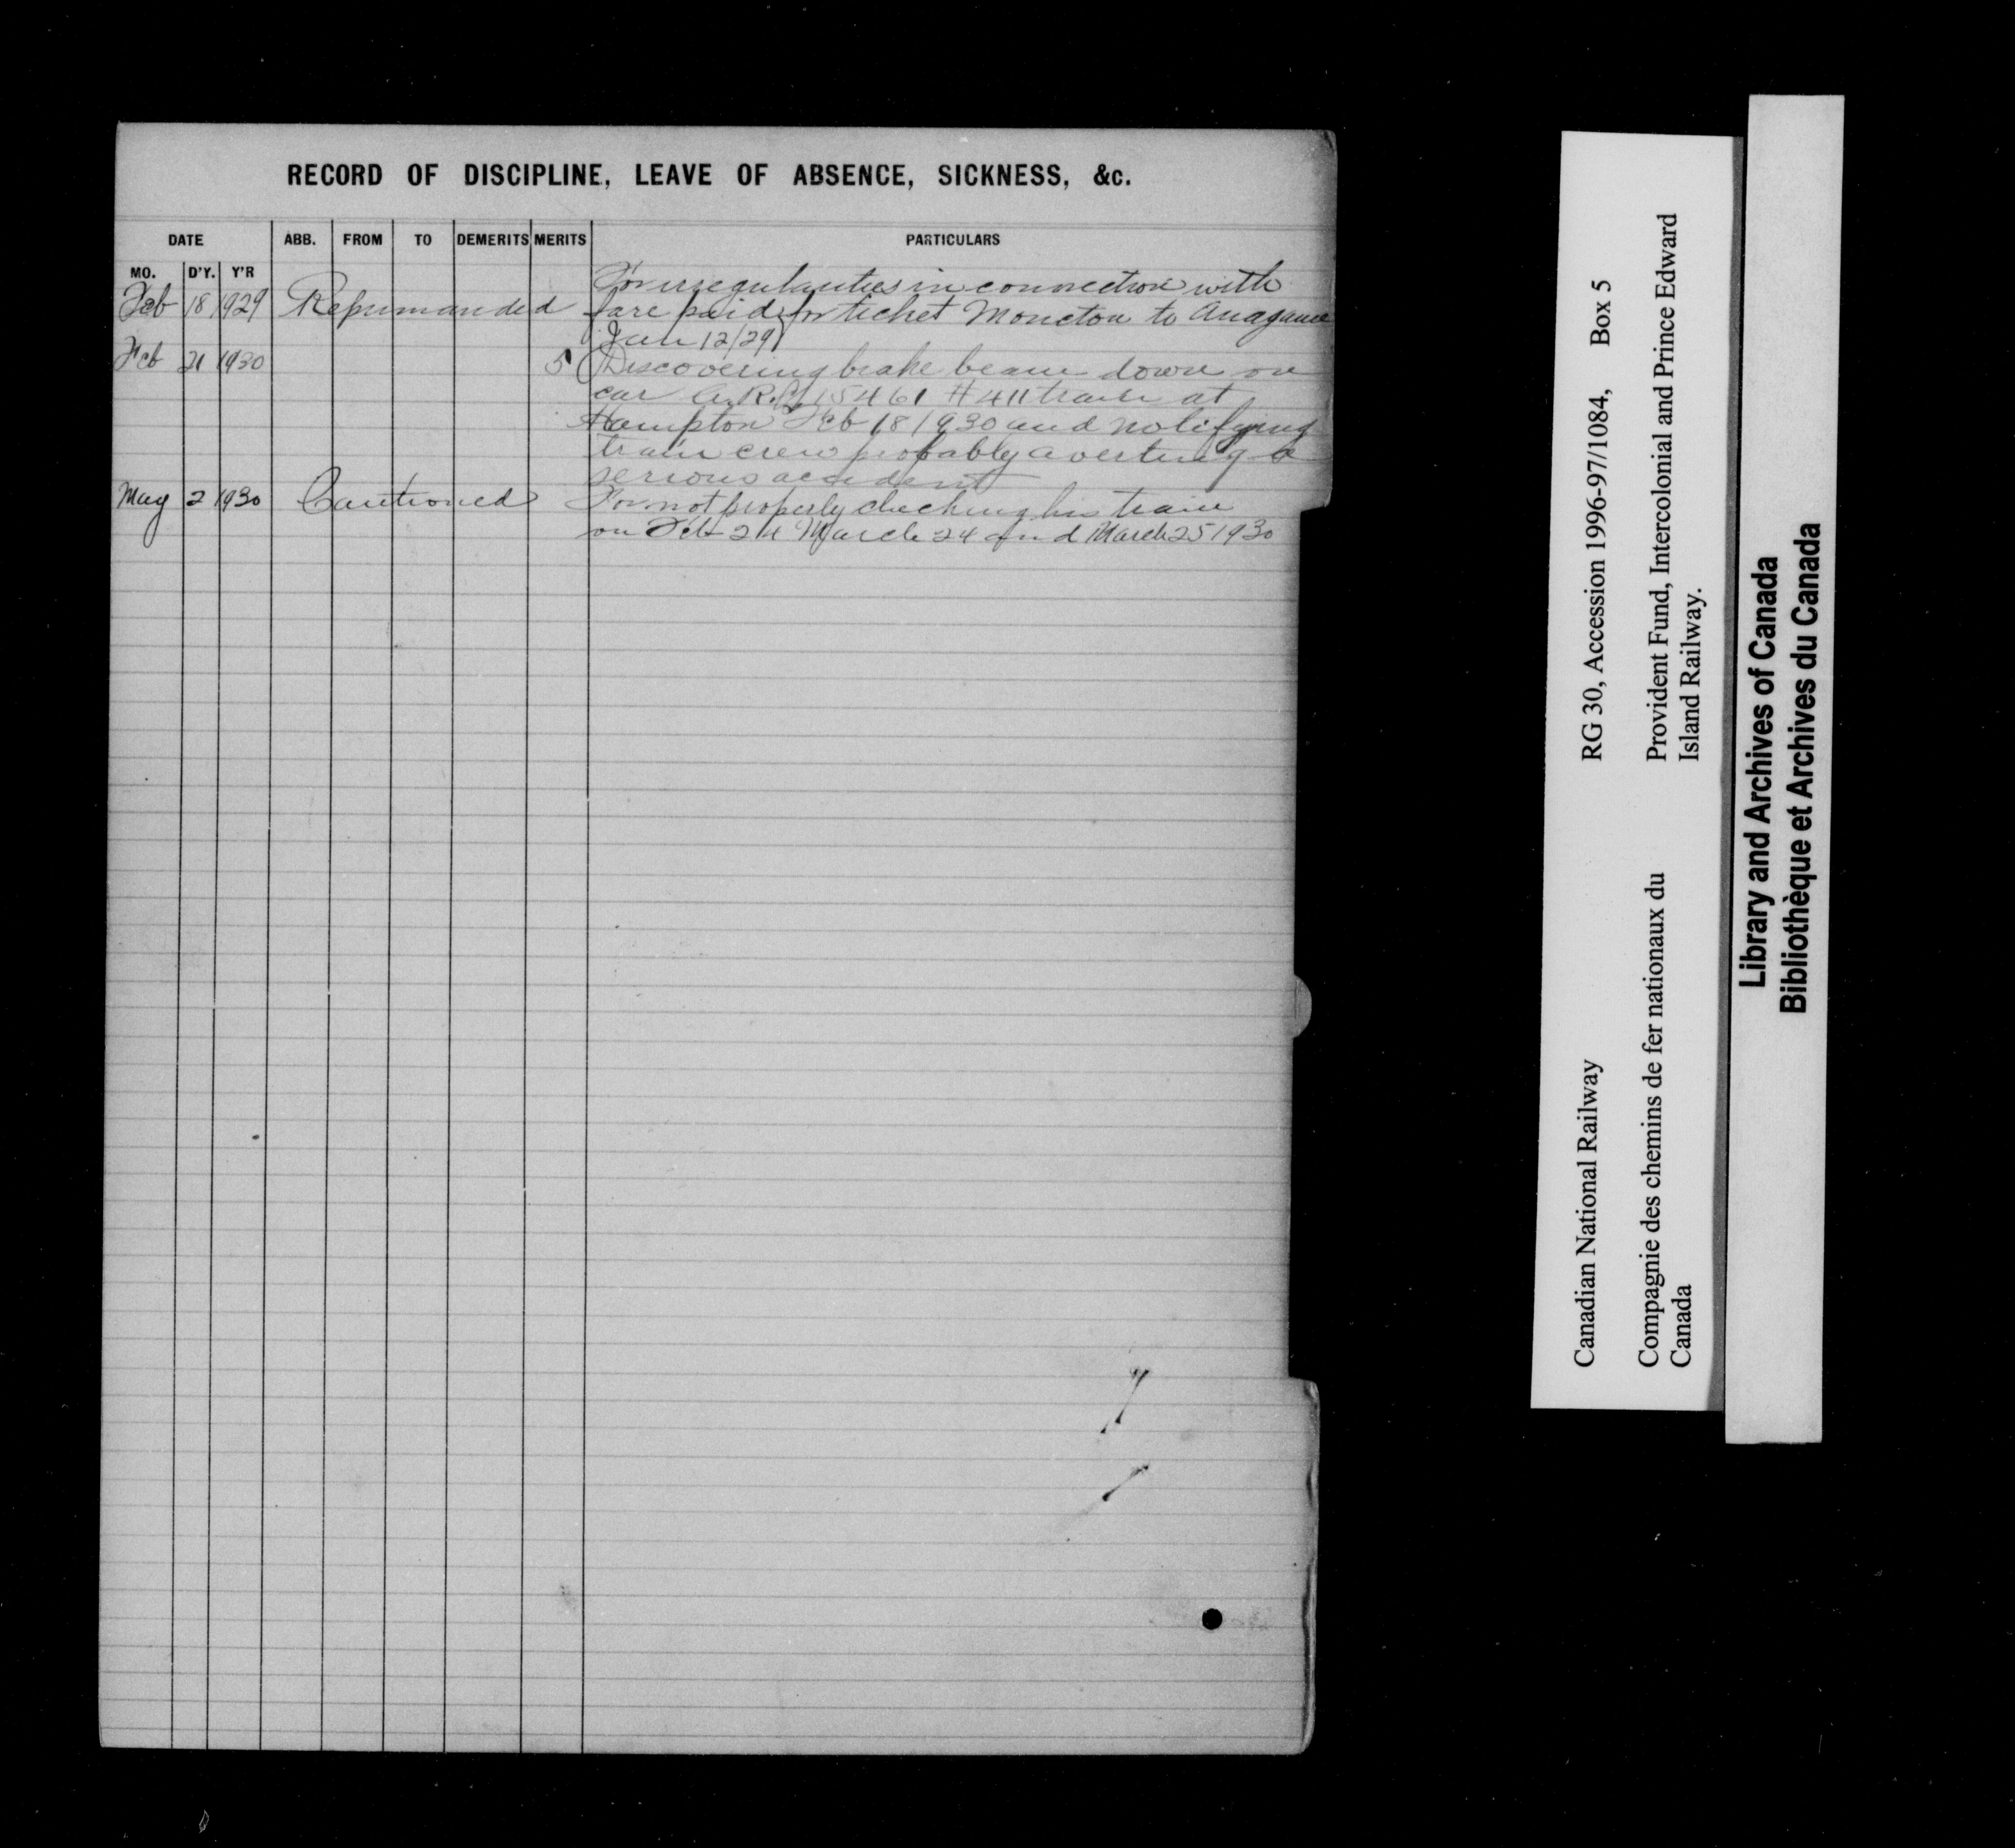 RECORD OF DISCIPLINE, LEAVE OF ABSENCE, SICKNESS, &c.
DATE ABB. FROM TO DEMERITS MERITS PARTICULARS
MO. D'Y. Y'R
For irregularities in connection with
Feb 18 1929 Reprimanded fare paid for ticket Moncton to Anagance
Jan 12/29
Feb 21 1930 5 Discovering brake beam down on
car 15461 #411 train at
Hampton Feb 18/930 and notifying
train crew probably averting a
serious accident
May 2 1930 Cautioned For not properly checking his train
on Feb 24 March 24 and March 25 1930
Canadian National Railway RG 30, Accession 1996-97/1084, Box 5
Compagnie des chemins de fer nationaux du Provident Fund, Intercolonial and Prince Edward
Canada Island Railway.
Library and Archives of Canada
Bibliothèque et Archives du Canada